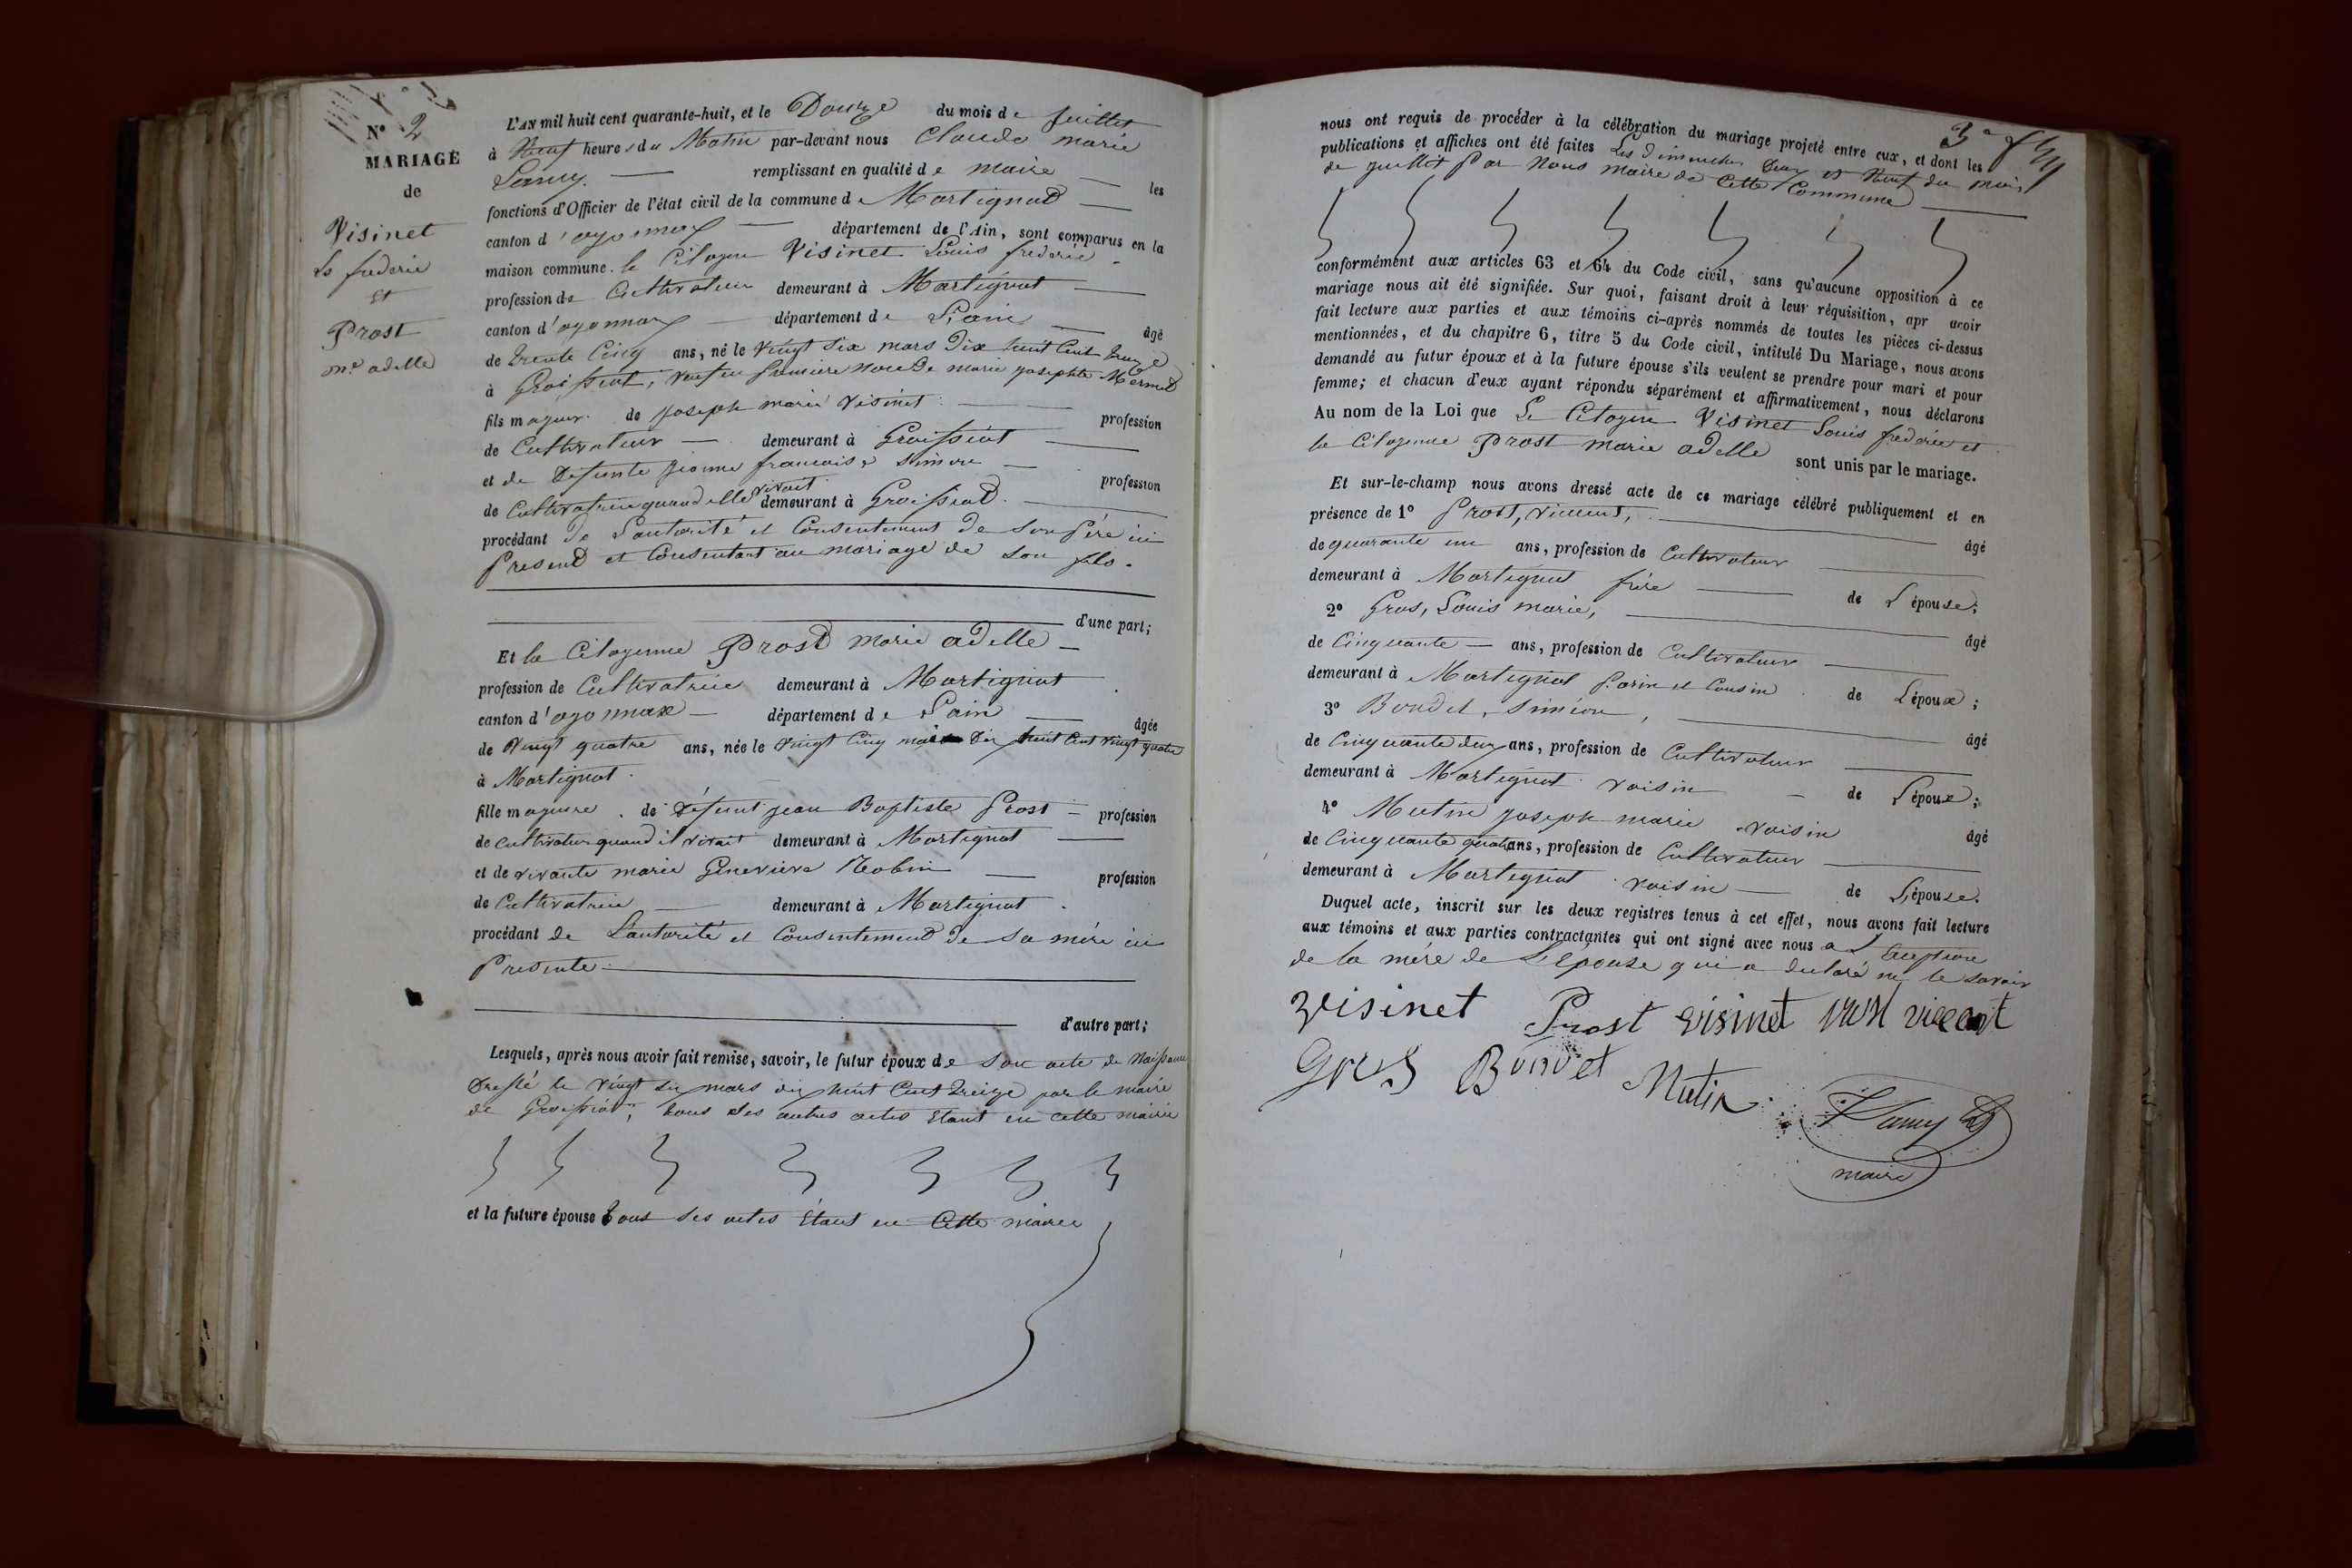 N° 2
MARIAGE
de
Visinet
Ls frederic
et
Prost
me adelle
L'AN mil huit cent quarante-huit, et le Douze du mois de juillet
à Neuf heures du Matin par-devant nous Claude marie
Lamy. remplissant en qualité de maire les
fonctions d'Officier de l'état civil de la commune de Martignat
canton d'oyonnax département de l'Ain, sont comparus en la
maison commune. le Citoyen Visinet Louis frederic
profession de Cultivateur demeurant à Martignat
canton d'oyonnax département de L'ain âgé
de trente Cinq ans, né le vingt six mars Dix huit Cent treize
à Groissiat, veuf en premiere noce De marie josephte Mermet
fils majeur de joseph marie visinet profession
de Cultivateur demeurant à Groissiat
et de Defunte jeanne francoise simon profession
de Cultivatrice quand elle vivait demeurant à Groissiat
procédant De L'autorité et Consentement De son père ici
Present et Consentant au mariage de son fils.
d'une part;
Et la Citoyenne Prost marie adelle
profession de Cultivatrice demeurant à Martignat
canton d'oyonnax département de L'ain âgée
de vingt quatre ans, née le vingt Cinq mai Dix huit Cent vingt quatre
à Martignat
fille majeure de Défunt jean Baptiste Prost profession
de cultivateur quand il vivait demeurant à Martignat
et de vivante marie Genevieve Robin profession
de Cultivatrice demeurant à Martignat
procédant de L'autorité et Consentement De sa mére ici
Presente
d'autre part;
Lesquels, après nous avoir fait remise, savoir, le futur époux de son acte de Naissance
Dressé le vingt six mars dix huit Cent treize par le maire
de Groissiat, tous ses autres actes etant en cette mairie
et la future épouse tous ses actes étant en Cette mairie
nous ont requis de procéder à la célébration du mariage projeté entre eux, et dont les
publications et affiches ont été faites Les Dimanches Deux et Neuf du mois
de juillet Par Nous maire de Cette Commune
conformément aux articles 63 et 64 du Code civil, sans qu'aucune opposition à ce
mariage nous ait été signifiée. Sur quoi, faisant droit à leur réquisition, apr avoir
fait lecture aux parties et aux témoins ci-après nommés de toutes les pièces ci-dessus
mentionnées, et du chapitre 6, titre 5 du Code civil, intitulé Du Mariage, nous avons
demandé au futur époux et à la future épouse s'ils veulent se prendre pour mari et pour
femme; et chacun d'eux ayant répondu séparément et affirmativement, nous déclarons
Au nom de la Loi que Le Citoyen Visinet Louis frederic et
la Citoyenne Prost marie adelle sont unis par le mariage.
Et sur-le-champ nous avons dressé acte de ce mariage célébré publiquement et en
présence de 1° Prost, vincent, âgé
de quarante un ans, profession de Cultivateur
demeurant à Martignat frère de L'épouse;
2° Gros, Louis marie, âgé
de Cinquante ans, profession de Cultivateur
demeurant à Martignat Parin et Cousin de L'époux;
3° Bondet, Siméon, âgé
de Cinquante deux ans, profession de Cultivateur
demeurant à Martignat voisin de L'époux;
4° Mutin joseph marie voisin âgé
de Cinquante quatre ans, profession de Cultivateur
demeurant à Martignat voisin de L'épouse.
Duquel acte, inscrit sur les deux registres tenus à cet effet, nous avons fait lecture
aux témoins et aux parties contractantes qui ont signé avec nous a L'exception
de la mére de L'épouse qui a declaré ne le savoir
visinet Prost visinet prost vincent
Gros Bondet Mutin Lamy
maire